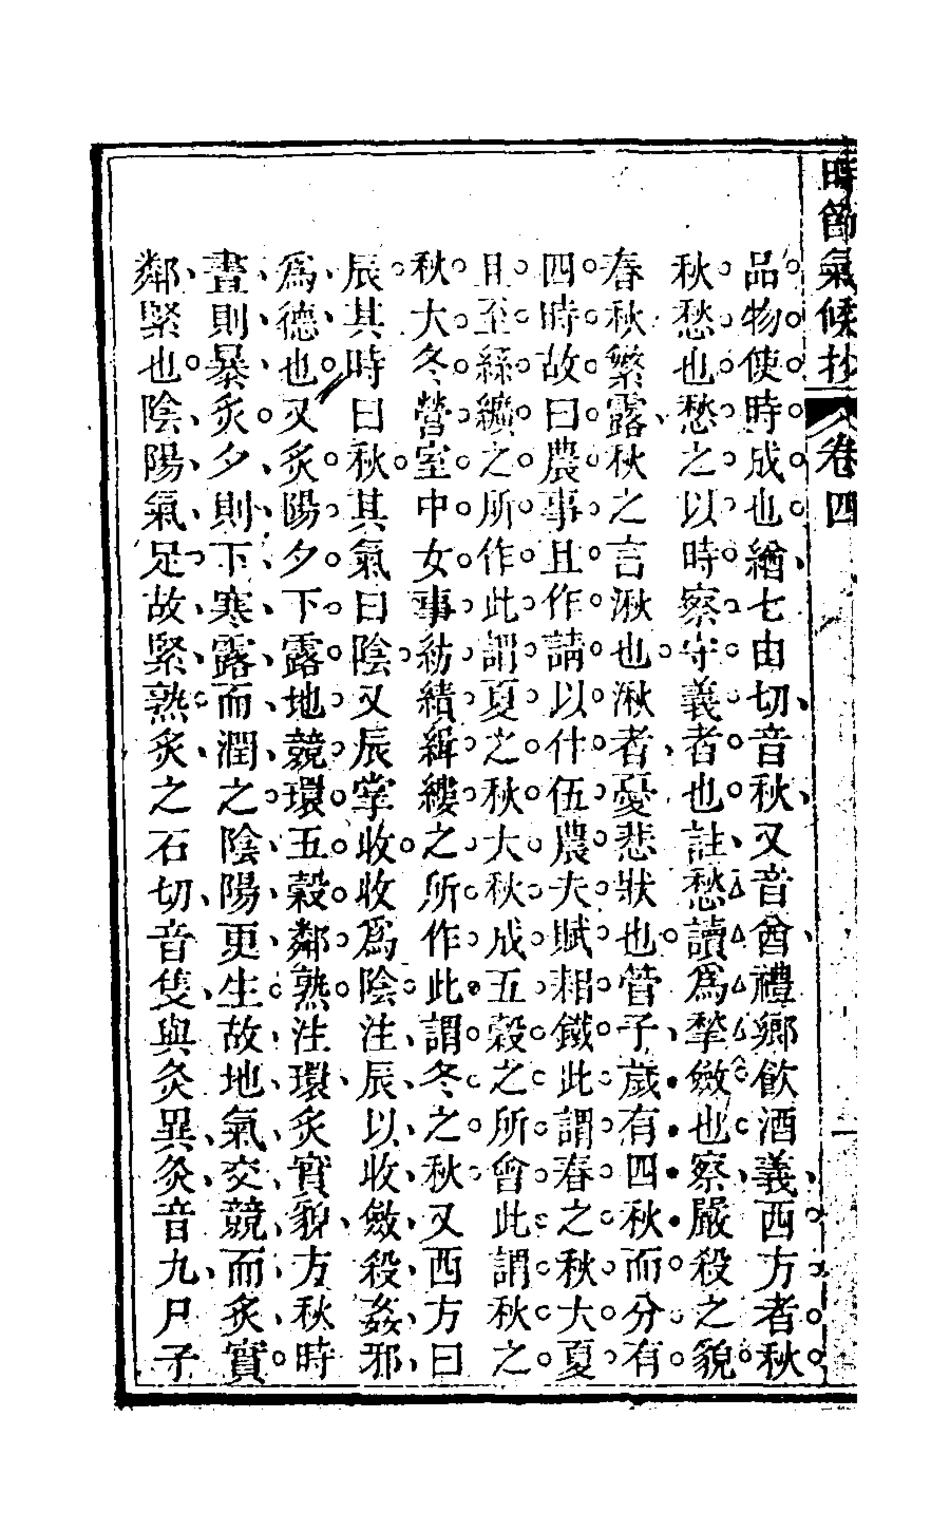 時節氣候抄 卷四
品物使時成也緧七由切音秋又音酋禮鄉飲酒義西方者秋
秋愁也愁之以時察守義者也註愁讀爲揫斂也察嚴殺之貌
春秋繁露秋之言湫也湫者憂悲狀也管子歲有四秋而分有
四時故曰農事且作請以什伍農夫賦耜鐵此謂春之秋大夏
且至絲纊之所作此謂夏之秋大秋成五穀之所會此謂秋之
秋大冬營室中女事紡績緝縷之所作此謂冬之秋又西方曰
辰其時曰秋其氣曰陰又辰掌收收爲陰注辰以收斂殺姦邪
爲德也又炙陽夕下露地競環五穀鄰熟注環炙實貌方秋時
晝則暴炙夕則下寒露而潤之陰陽更生故地氣交競而炙實
鄰緊也陰陽氣足故緊熟炙之石切音隻與灸異灸音九尸子